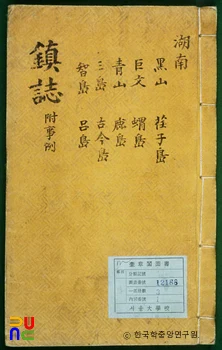 湖南
黑山 荏子島
巨文 蝟島
青山 鹿島
三島 古今島
智島 呂島
鎭誌 附事例
奎章閣圖書
12165
서울大學校
ⓒ 한국학중앙연구원